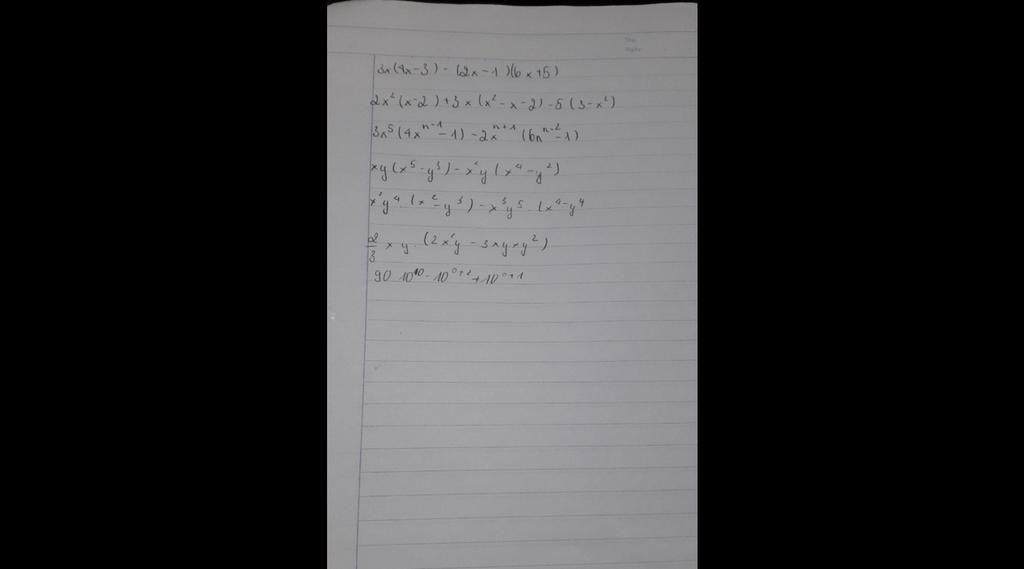 3x(4x-3) - (2x-1)(6x+5)
2x²(x-2)+3x(x²-x-2)-5(3-x²)
3x⁵(4xⁿ⁻¹-1)-2xⁿ⁺¹(6nⁿ⁻²-1)
xy(x⁵-y³)-x²y(x⁴-y²)
x²y⁴(x²-y³)-x³y⁵(x⁴-y⁴
2/3 xy(2x²y-3xyxy²)
90 10¹⁰-10⁰⁺²+10⁰⁺¹